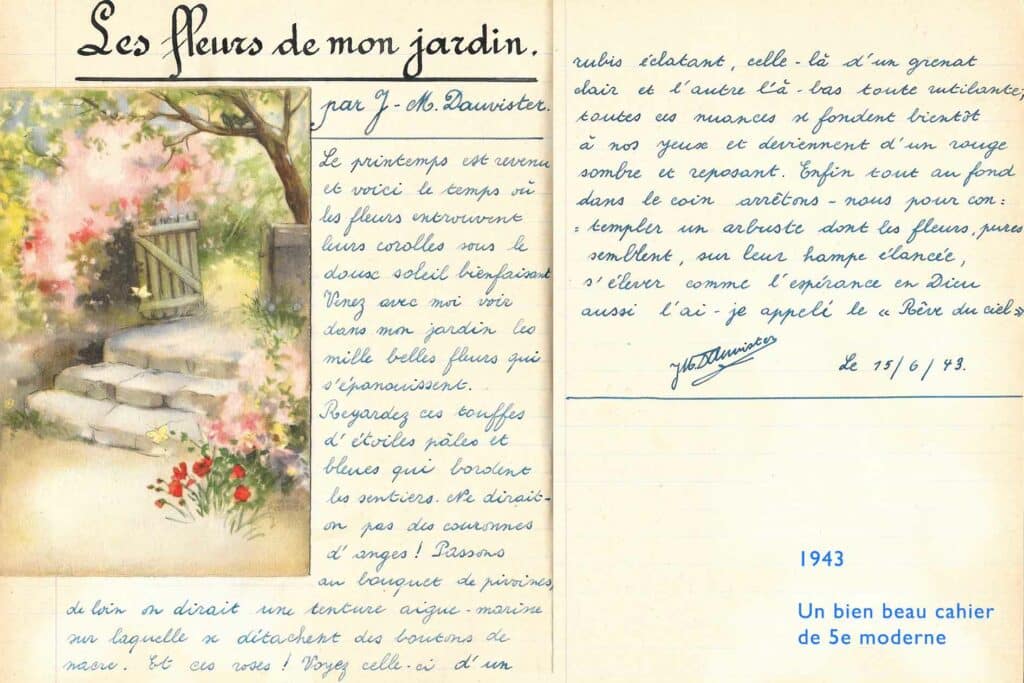 Les fleurs de mon jardin.
par J-M. Dauvister.
Le printemps est revenu
et voici le temps où
les fleurs entrouvent
leurs corolles sous le
doux soleil bienfaisant
Venez avec moi voir
dans mon jardin les
mille belles fleurs qui
s'épanouissent.
Regardez ces touffes
d'étoiles pâles et
bleues qui bordent
les sentiers. Ne dirait-
on pas des couronnes
d'anges ! Passons
au bouquet de pivoines,
de loin on dirait une tenture aigue-marine
sur laquelle se détachent des boutons de
nacre. Et ces roses ! Voyez celle-ci d'un
rubis éclatant, celle-là d'un grenat
clair et l'autre là-bas toute rutilante;
toutes ces nuances se fondent bientôt
à nos yeux et deviennent d'un rouge
sombre et reposant. Enfin tout au fond
dans le coin arrêtons-nous pour con=
=templer un arbuste dont les fleurs, pures
semblent, sur leur hampe élancée,
s'élever comme l'espérance en Dieu
aussi l'ai-je appelé le « Rêve du ciel »
JM.Dauvister
Le 15/6/43.
1943
Un bien beau cahier
de 5e moderne